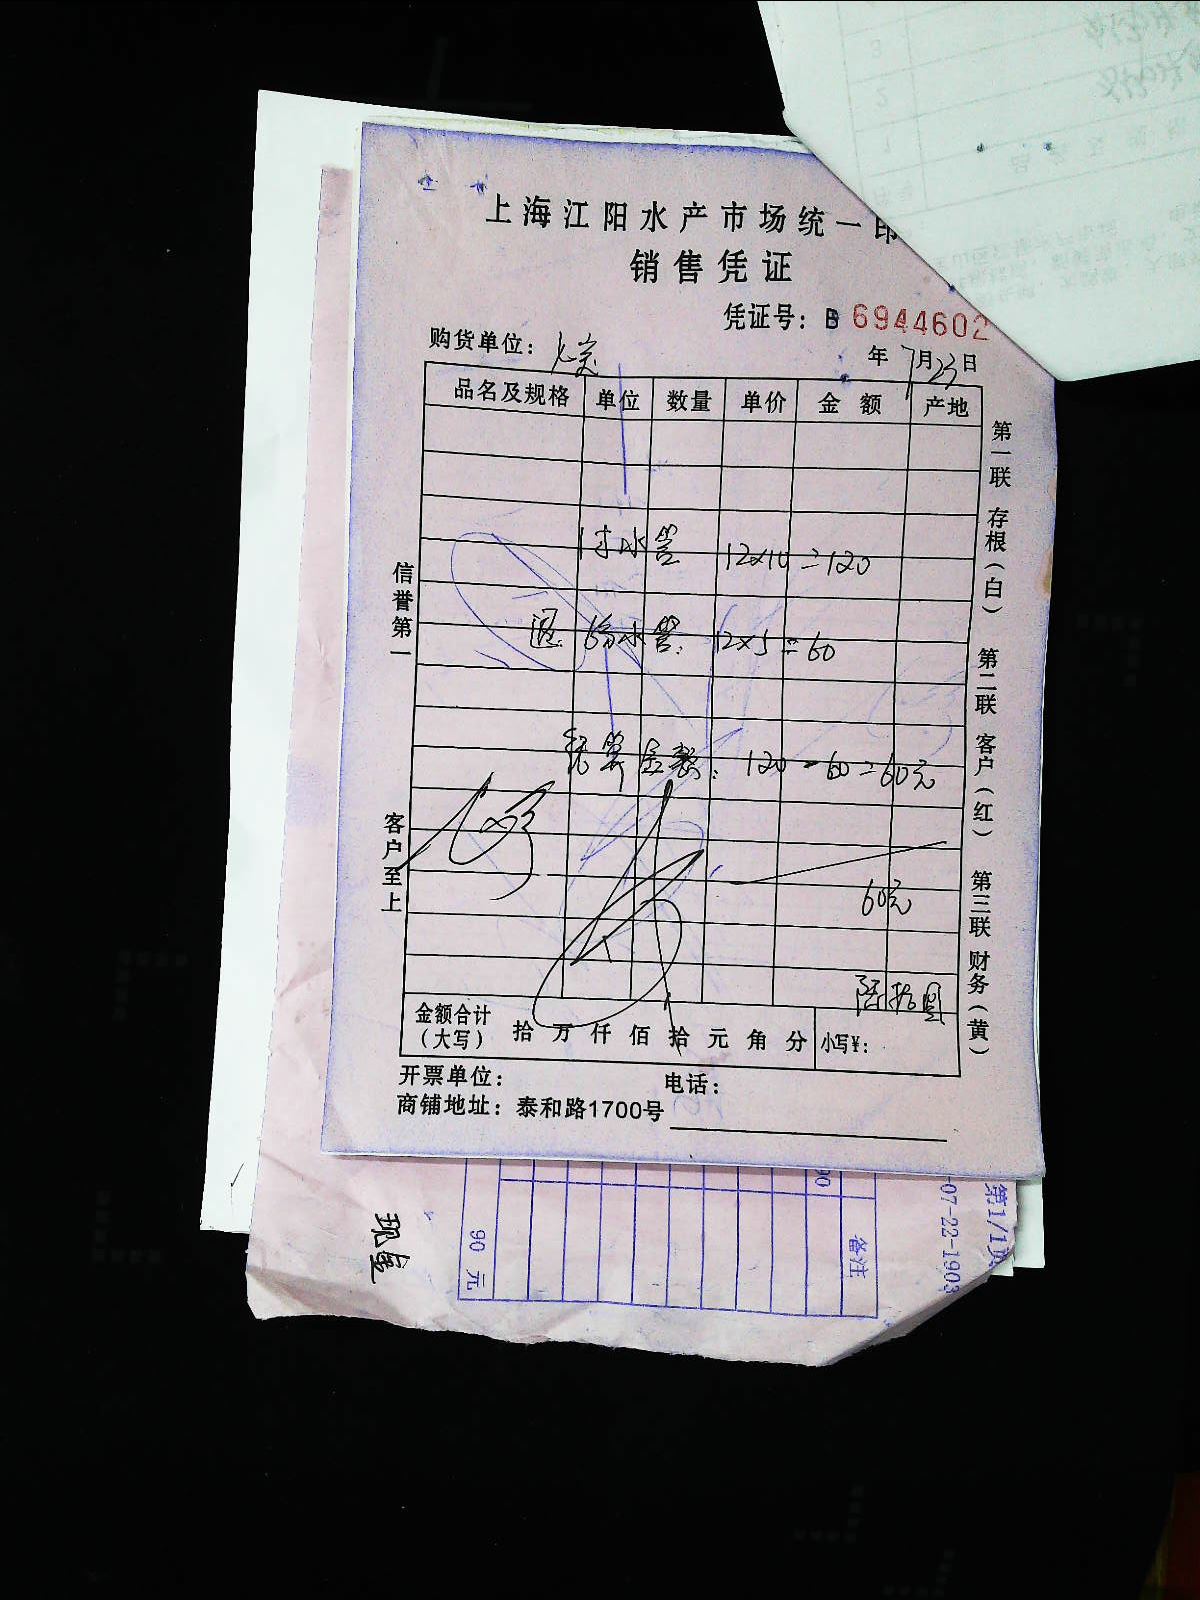 上海江阳水产市场统一印
销售凭证
凭证号: B 6944602
购货单位:
年 7月23日
品名及规格 单位 数量 单价 金 额 产地
水管 12x10=120
退: 水管: 12x5=60
结算金额: 120-60=60元
60元
陆拾圆
金额合计(大写) 拾 万 仟 佰 拾 元 角 分 小写¥:
开票单位: 电话:
商铺地址: 泰和路1700号
信誉第一 客户至上
第一联 存根(白) 第二联 客户(红) 第三联 财务(黄)
现金
90 元
备注
第1/1页
-07-22-1903